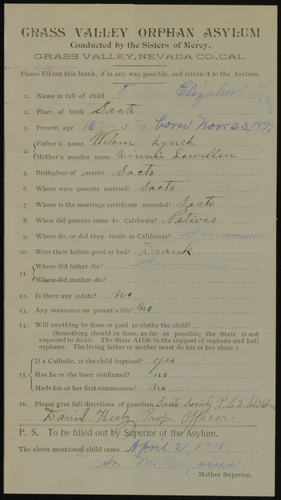 GRASS VALLEY ORPHAN ASYLUM
Conducted by the Sisters of Mercy.
GRASS VALLEY, NEVADA CO., CAL.
Please fill out this blank, if in any way possible, and return it to the Asylum.
1. Name in full of child Elizabeth
2. Place of birth Sacto
3. Present age born Nov. 23,
4. Father's name Lynch
Mother's maiden name Minnie Lewellen
5. Birthplace of parents Sacto
6. Where were parents married? Sacto
7. Where is the marriage certificate recorded? Sacto
8. When did parents come to California? Natives
9. Where do, or did they reside in California? Sacramento
10. Were their habits good or bad? Drank
11. Where did father die?
Where did mother die?
12. Is there any estate? No
13. Any insurance on parent's life? No
14. Will anything be done or paid to clothe the child?
(Something should be done, as far as possible; the State is not
expected to do all. The State AIDS in the support of orphans and half
orphans. The living father or mother must do his or her share.)
15. If a Catholic, is the child baptised? yes
Has he or she been confirmed? no
Made his or her first communion? no
16. Please give full directions of guardian Sacto Society P. C. to Children
Daniel Healy Prob Officer
P. S. To be filled out by Superior of the Asylum.
The above mentioned child came April 2, 1909
Sr. M.
Mother Superior.